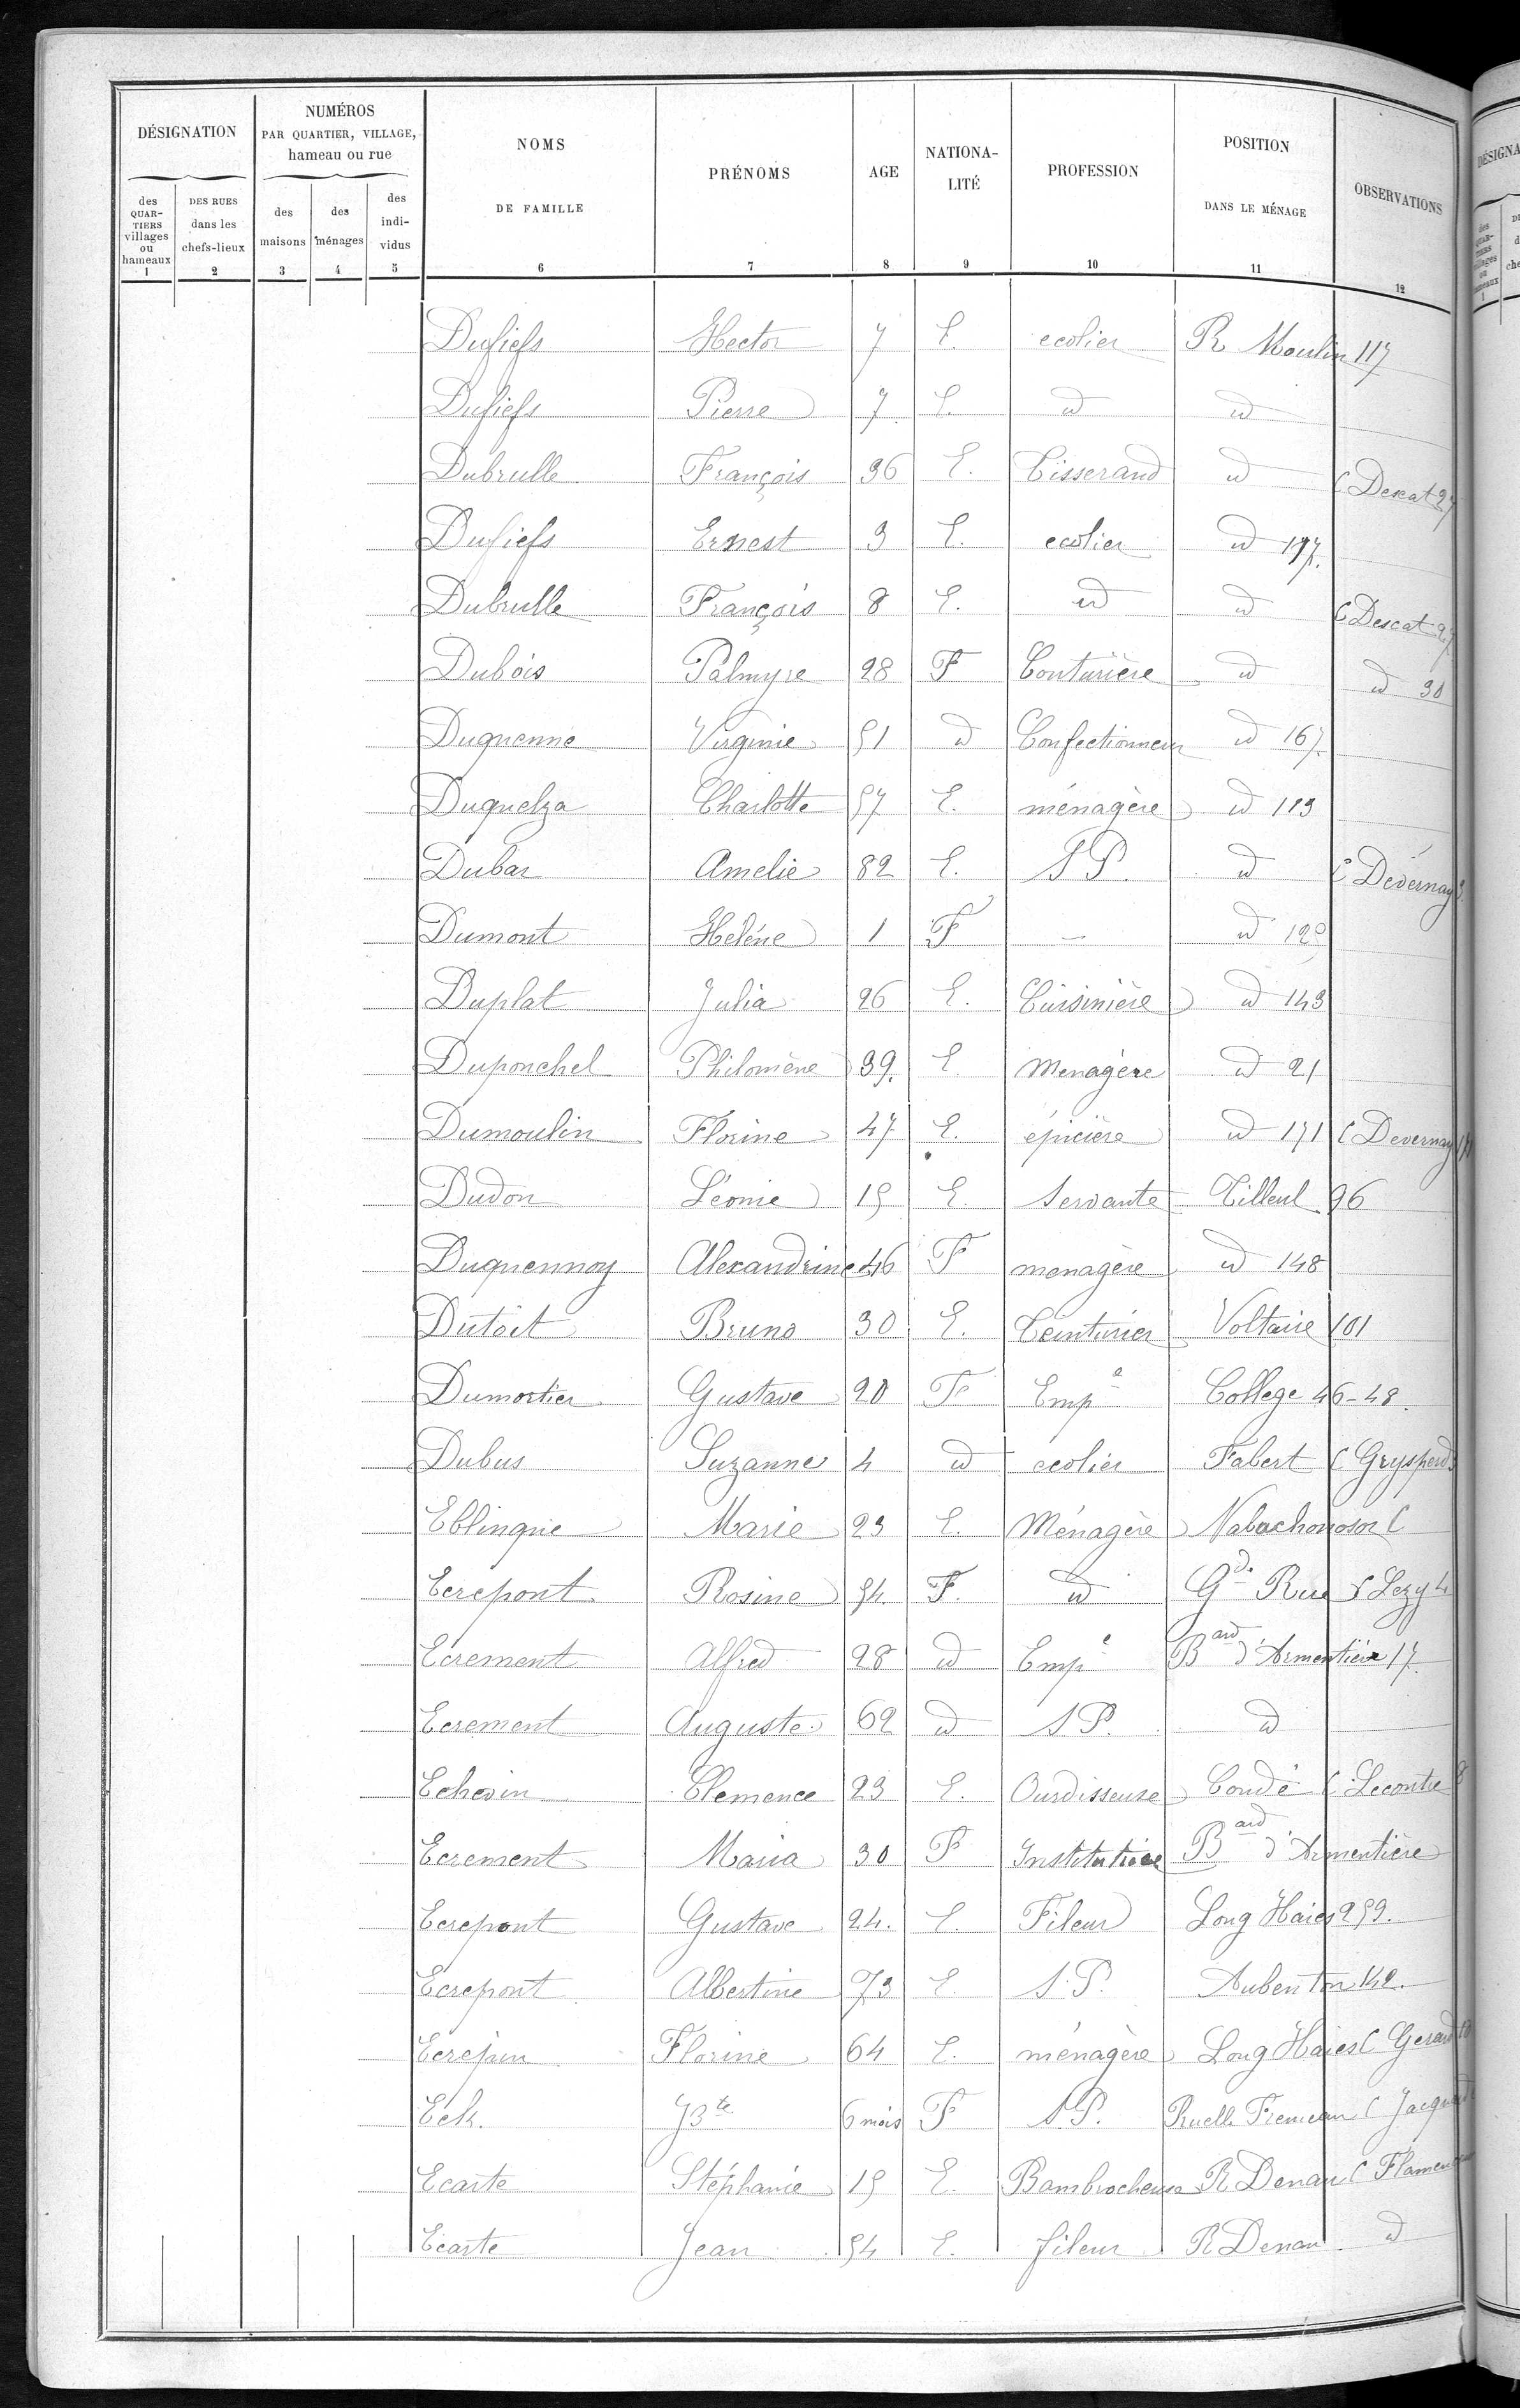 DÉSIGNATION
NUMÉROS PAR QUARTIER, VILLAGE, hameau ou rue
NOMS DE FAMILLE
PRÉNOMS
AGE
NATIONA-LITÉ
PROFESSION
POSITION DANS LE MÉNAGE
OBSERVATIONS
des QUAR-TIERS villages ou hameaux
DES RUES dans les chefs-lieux
des maisons
des ménages
des indi-vidus
1 2 3 4 5 6 7 8 9 10 11 12
Dufiefs Hector 7 E. ecolier R Moulin 117
Dufiefs Pierre 7 E. id id
Dubrulle François 36 E. Tisserand id C Descat 27
Dufiefs Ernest 3 E. ecolier id 117.
Dubrulle François 8 E. id id C Descat 27
Dubois Palmyre 28 F Couturière id id 30
Duquenne Virginie 51 id Confectionneur id 167.
Duquelza Charlotte 57 E. ménagère id 113
Dubar Amelie 82 E. S P. id C Devernay
Dumont Heléne 1 F — id 129
Duplat Julia 26 E. Cuisinière id 143
Duponchel Philomène 39. E. Menagère id 21
Dumoulin Florine 47 E. épicière id 171 C Devernay
Dudon Léonie 15 E. Servante Tilleul 96
Duquennoy Alexandrine 46 F menagère id 148
Dutoit Bruno 30 E. Teinturier Voltaire 101
Dumortier Gustave 20 F Empé College 46-48.
Dubus Suzanne 4 id ecolier Fabert C Grysperd
Eblinque Marie 23 E. Ménagère Nabuchonosor C
Ecrepont Rosine 54. F. id Gde Rue C Lezy 4
Ecrement Alfred 28 id Empé Bard d'Armentière 17
Ecrement Auguste 62 id S P. id
Echevin Clemence 23 E. Ourdisseuse Condé C Lecontre 8
Ecrement Maria 30 F Institutrice Bard d'Armentière
Ecrepont Gustave 24. E. Fileur Long Haies 259.
Ecrepont Albertine 73 E. S. P. Aubenton 142.
Florine 64 E. ménagère Long Haies C Gerard
Eck. JBte 6 mois F S P. Ruelle Fremeau C
Ecarte Stéphanie 15 E. Bambrocheuse R Denau C
Ecarte Jean 54 E. fileur R Denau id